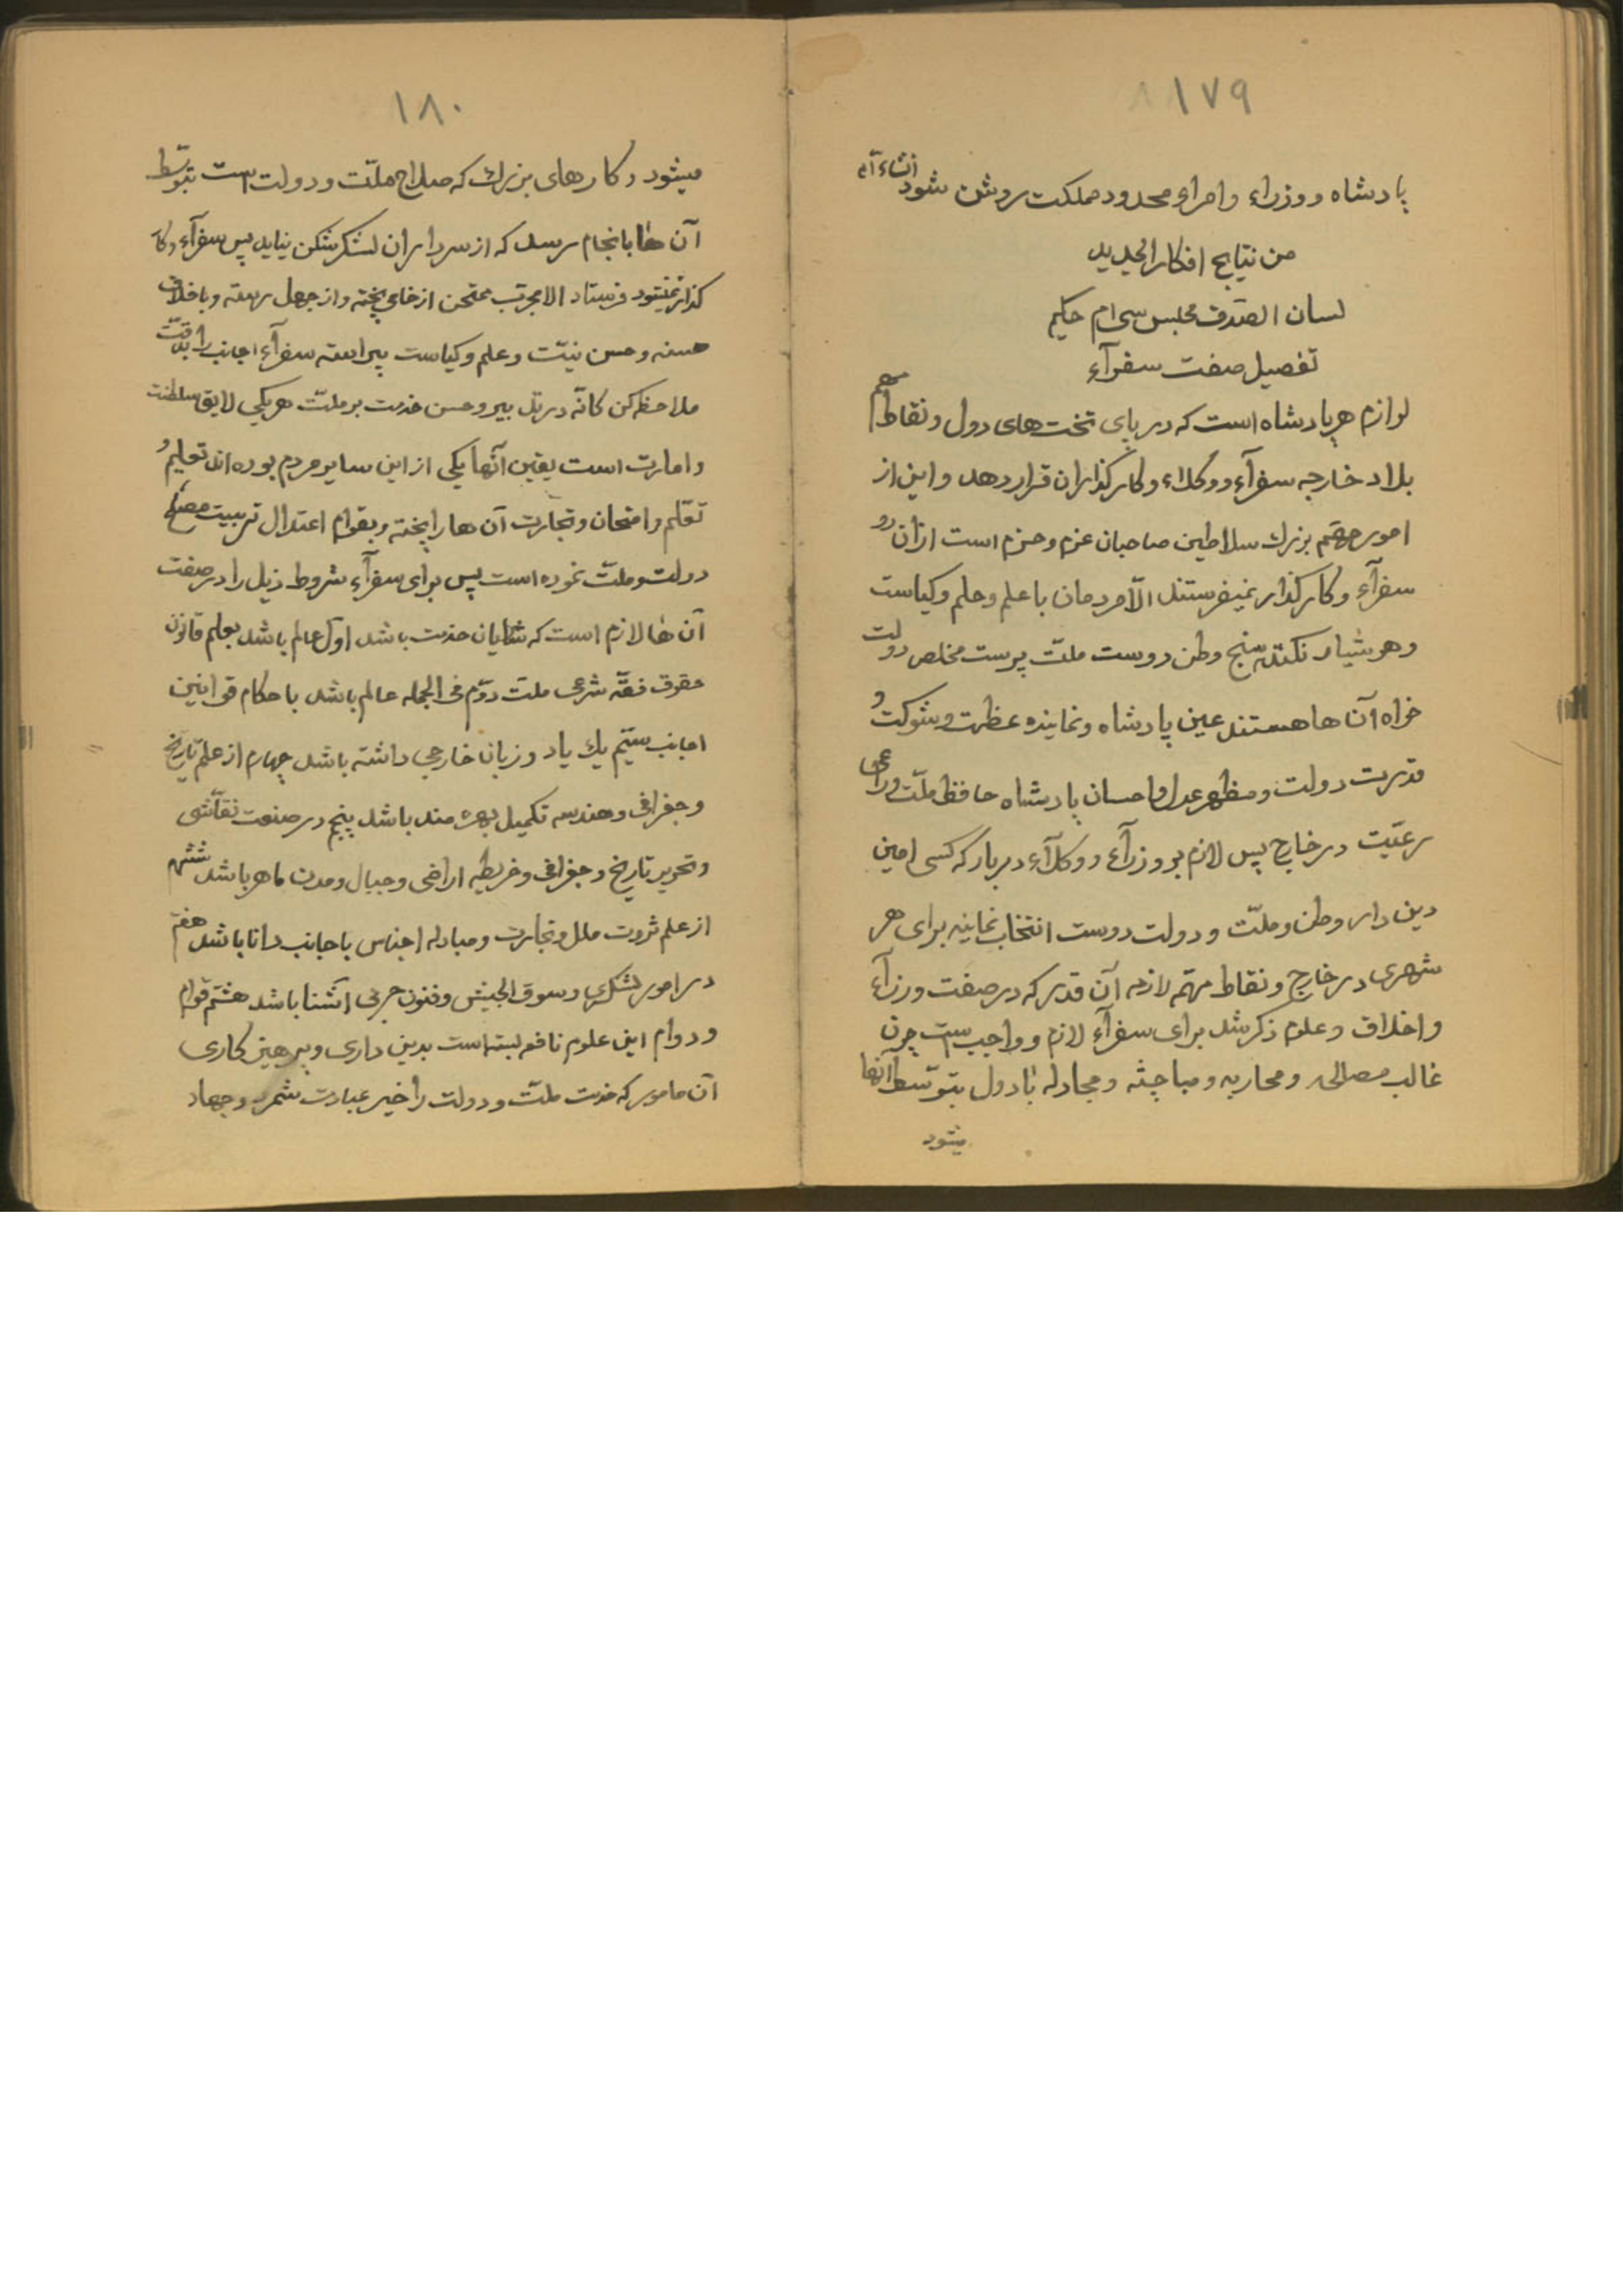 ١٧٩
پادشاه ووزراء وامراء محدود مملكت روشن شود انشاءالله
من نتایج افکار الجدید
لسان الصدق مجلس سی ام حکیم
تفصیل صفت سفرآء
لوازم هر پادشاه است که در پای تخت‌های دول ونقاط مهم
بلاد خارجه سفرآء ووکلاء وکارگذاران قرار دهد واین از
امور مهم بزرك سلاطین صاحبان عزم وحزم است ازان رو
سفرآء وکارگذار نمیفرستند الّا مردمان با علم وحلم وکیاست
وهوشیار نکته سنج وطن دوست ملّت پرست مخلص دولت
خواه آن ها هستند عین پادشاه ونماینده عظمت وشوکت و
قدرت دولت ومظهر عدل واحسان پادشاه حافظ ملّت وراعی
رعیّت در خارج پس لازم بر وزرآء ووکلآء دربار که کسی امین
دین دار وطن وملّت ودولت دوست انتخاب نمایند برای هر
شهری در خارج ونقاط مهمّه لازمه آن قدر که در صفت وزرآء
واخلاق وعلوم ذکر شد برای سفرآء لازم وواجب است چون
غالب مصالحه ومحاربه ومباحثه ومجادله با دول بتوسّط آنها
میشود
١٨٠
میشود وکارهای بزرك که صلاح ملّت ودولت است بتوسّط
آن ها بانجام رسد که از سرداران لشکر شکن نیاید پس سفرآء وکار
گذار نمیشود فرستاد الا مجرّب ممتحن از خامی پخته واز جهل رسته وباخلاق
حسنه وحسن نیّت وعلم وکیاست پیراسته سفرآء اجانب را بدقّت
ملاحظه کن کانّه در تدبیر وحسن خدمت بر ملّت هریکی لایق سلطنت
وامارت است یقین آنها یکی از این سایر مردم بوده اند تعلیم و
تعلّم وامتحان وتجارت آن ها را پخته وبقوام اعتدال تربیت مصلح
دولت وملّت نموده است پس برای سفرآء شروط ذیل را در صفت
آن ها لازم است که شایان خدمت باشد اوّل عالم باشد بعلم قانون
حقوق فقه شرعی ملت دوّم فی الجمله عالم باشد باحکام قوانین
اجانب سیّم یك یاد وزبان خارجی داشته باشد چهارم از علم تاریخ
وجغرافی وهندسه تکمیل بهره مند باشد پنج در صنعت نقّاشی
وتحریر تاریخ وجغرافی وخریطه اراضی وجبال ومدن ماهر باشد ششم
از علم ثروت ملل وتجارت ومبادله اجناس باجانب دانا باشد هفتم
در امور لشکری وسوق الجیش وفنون حربی آشنا باشد هشتم قوام
ودوام این علوم نافعه بسته است بدین داری وپرهیز کاری
آن مامور که خدمت ملّت ودولت را خیر عبادت شمرد وجهاد